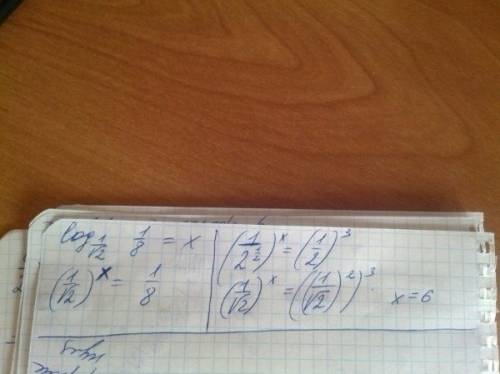 log_{1/√2} 1/8 = x
(1/√2)^x = 1/8
(1/2^{1/2})^x = (1/2)^3
(1/√2)^x = ((1/√2)^2)^3. x = 6